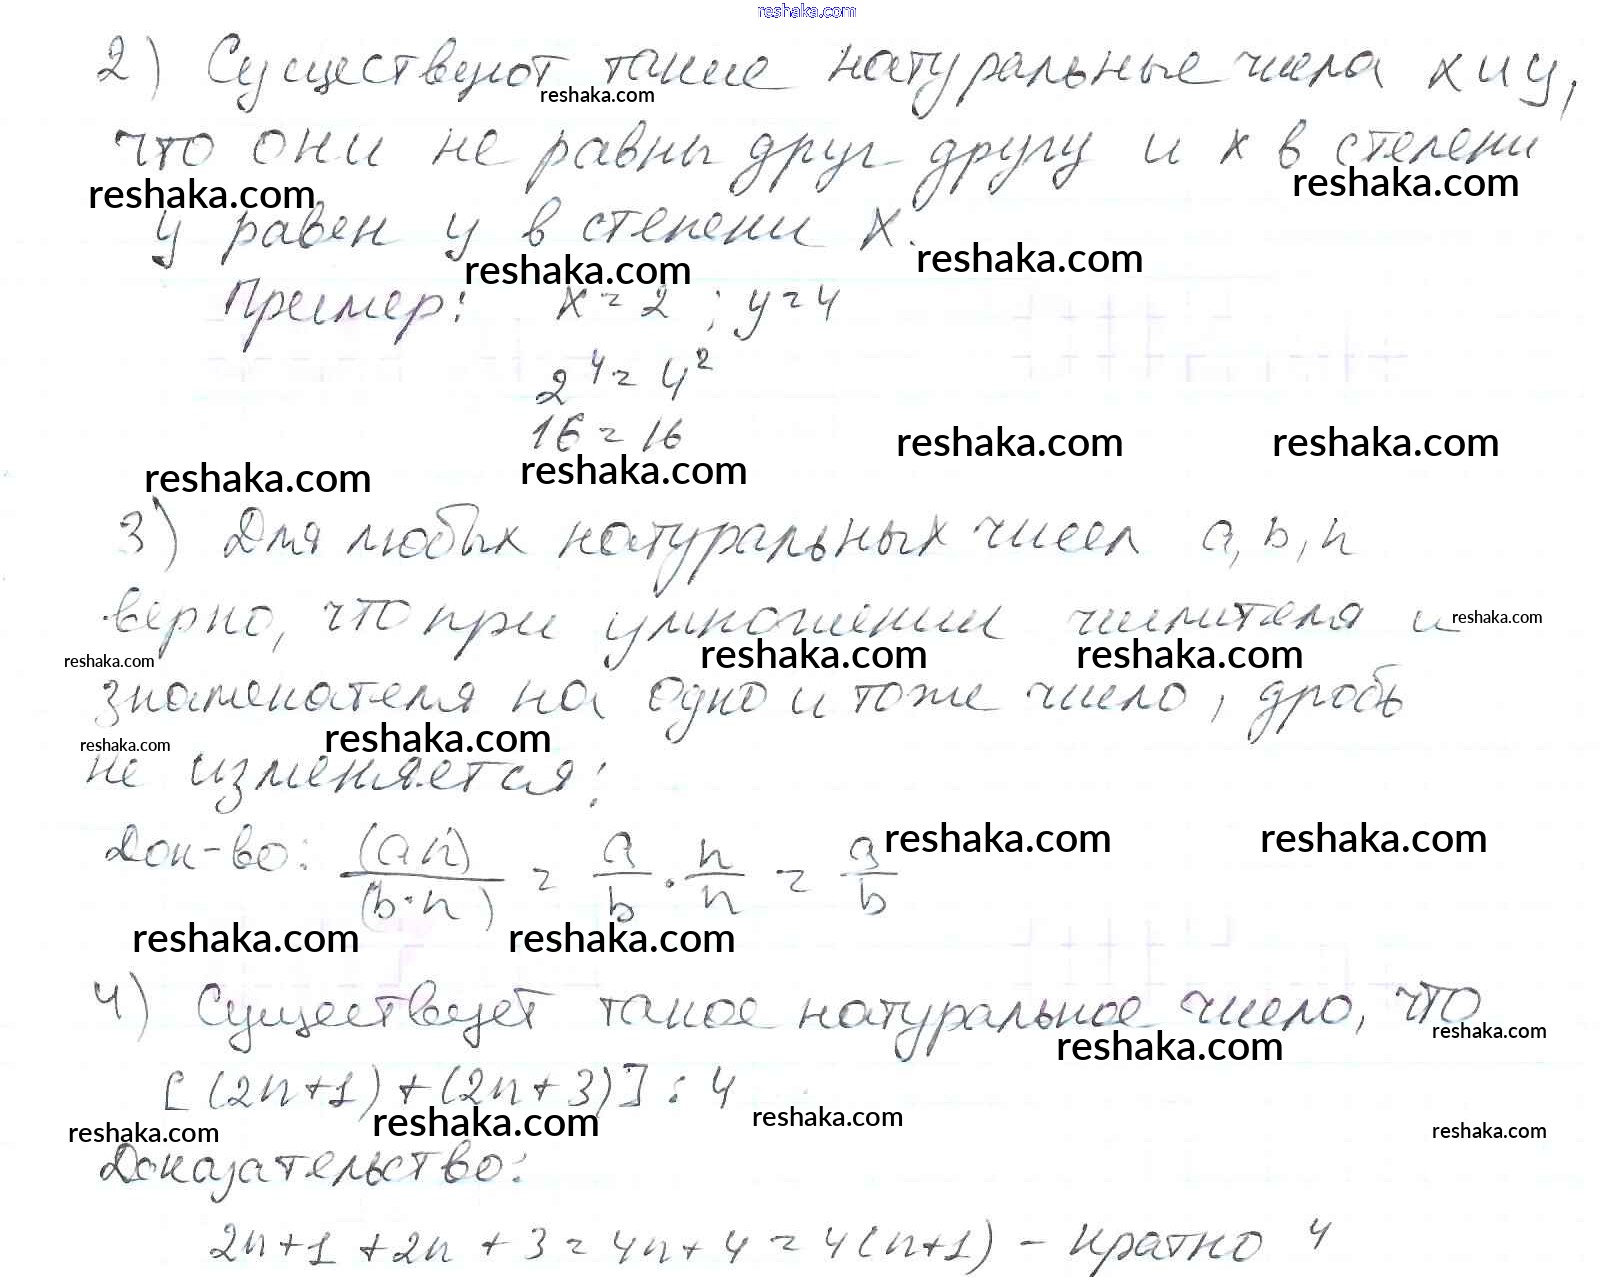 reshaka.com
2) Существуют такие натуральные числа x и y,
reshaka.com
что они не равны друг другу и x в степени
reshaka.com reshaka.com
y равен y в степени x.
reshaka.com reshaka.com
Пример: x = 2 ; y = 4
2⁴ = 4²
16 = 16
reshaka.com reshaka.com reshaka.com reshaka.com
3) Для любых натуральных чисел a, b, n
верно, что при умножении числителя и
reshaka.com reshaka.com reshaka.com reshaka.com
знаменателя на одно и тоже число, дробь
reshaka.com reshaka.com
не изменяется:
Док-во: (a n)/(b·n) = a/b · n/n = a/b
reshaka.com reshaka.com reshaka.com reshaka.com
4) Существует такое натуральное число, что
reshaka.com reshaka.com
[(2n+1)+(2n+3)] : 4
reshaka.com reshaka.com reshaka.com reshaka.com
Доказательство:
2n+1+2n+3=4n+4=4(n+1) - кратно 4